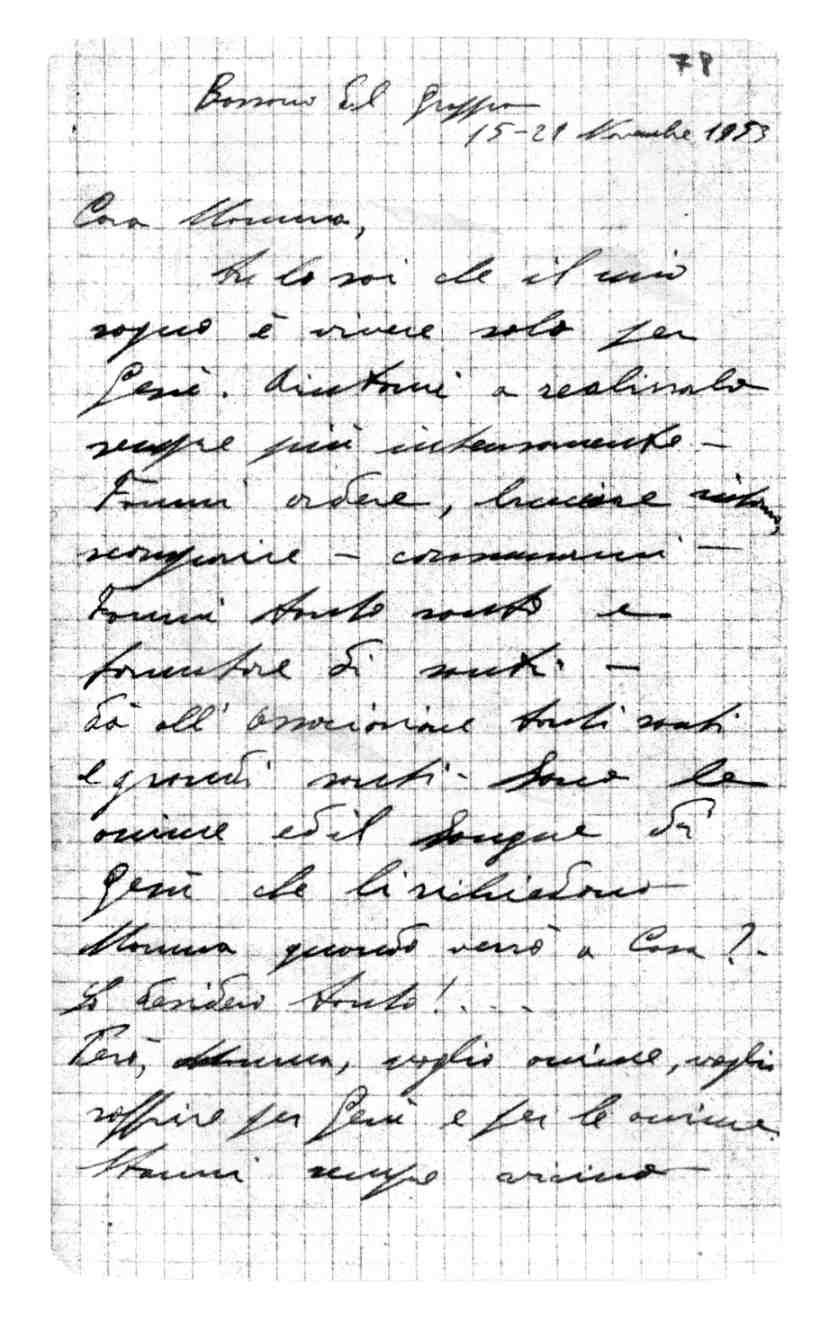 78
Bassano del Grappa
15-21 Novembre 1953
Cara Mamma,
tu lo sai che il mio
sogno è vivere solo per
Gesù. Aiutami a realizzarlo
sempre più intensamente -
Fammi ardere, bruciare
scomparire - consumarmi -
Fammi tanto santo e
formatore di santi -
dà all'Associazione tanti santi
e grandi santi - Sono le
anime ed il Sangue di
Gesù che li richiedono
Mamma quando verrò a Casa? -
Lo desidero tanto! . . . -
Però, Mamma, voglio anime, voglio
soffrire per Gesù e per le anime.
Stammi sempre vicino